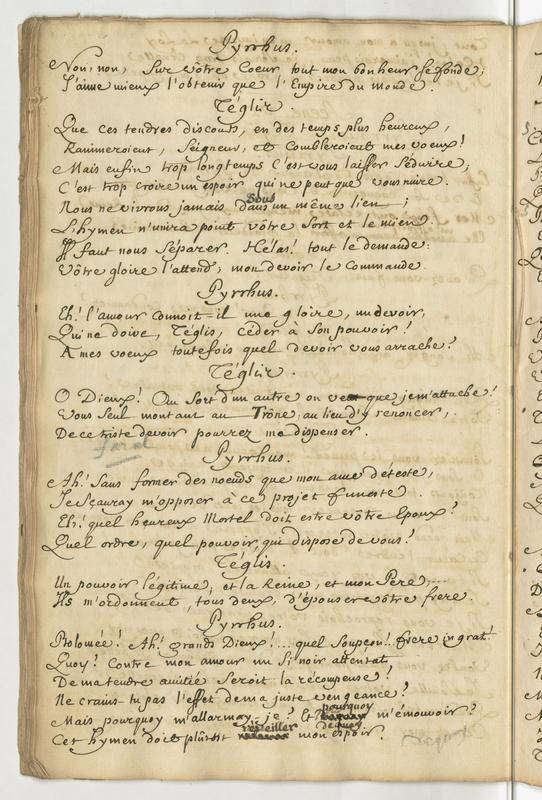 Pyrrhus.
Non, non, sur vôtre Coeur tout mon bonheur se fonde;
J'aime mieux l'obtenir que l'Empire du monde.
Téglis.
Que ces tendres discours, en des temps plus heureux,
Ranimeroient, Seigneur, et Combleroient mes voeux!
Mais enfin trop longtemps C'est vous laisser Séduire;
C'est trop croire un espoir qui ne peut que vous nuire.
Sous
Nous ne vivrons jamais dans un même lien;
L'hymen n'unira point vôtre Sort et le mien.
Il faut nous Séparer. Hélas! tout le demande:
Vôtre gloire l'attend; mon devoir le Commande.
Pyrrhus.
Eh! l'amour connoit-il une gloire, un devoir,
Qui ne doive, Téglis, céder à Son pouvoir!
A mes voeux toutefois quel devoir vous arrache?
Téglis.
O Dieux! Au Sort d'un autre on veut que je m'attache!
Vous Seul montant au Trône, au lieu d'y renoncer,
De ce triste devoir pourrez me dispenser.
fatal
Pyrrhus.
Ah! Sans former des noeuds que mon ame déteste,
Je Sçauray m'opposer à ce projet funeste.
Eh! quel heureux Mortel doit estre vôtre Epoux?
Quel ordre, quel pouvoir, qui dispose de vous?
Téglis.
Un pouvoir légitime, et la Reine, et mon Pere....
Ils m'ordonnent, tous deux, d'épouser vôtre frere.
Pyrrhus.
Ptolomée! Ah! grands Dieux!... quel Soupçon!.. frere ingrat!
Quoy! Contre mon amour un Si noir attentat
De ma tendre amitié Seroit la récompense?
Ne crains-tu pas l'effet de ma juste vengeance?
pourquoy
Mais pourquoy m'allarmay-je? Et dequoy m'émouvoir?
Cet hymen doit plûtost réveiller mon espoir.